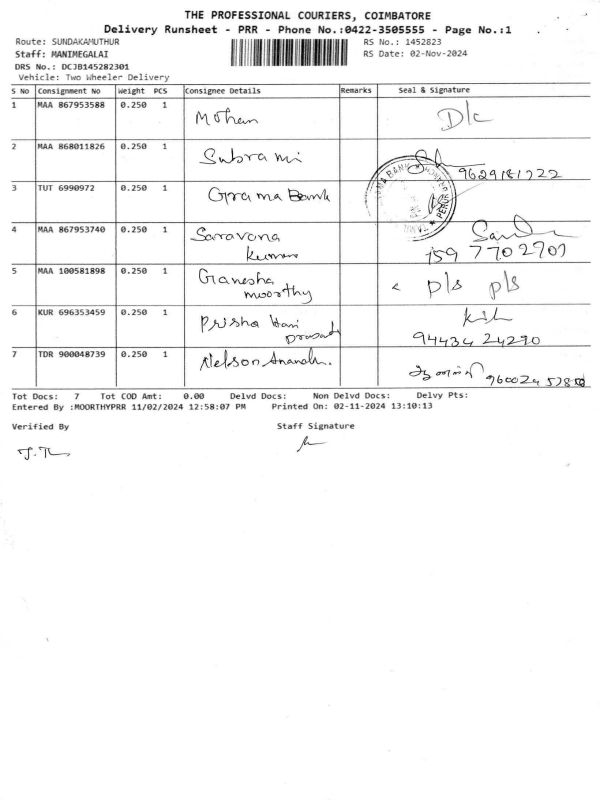 THE PROFESSIONAL COURIERS, COIMBATORE
Delivery Runsheet - PRR - Phone No.:0422-3505555 - Page No.:1
Route: SUNDAKAMUTHUR RS No.: 1452823
Staff: MANIMEGALAI RS Date: 02-Nov-2024
DRS No.: DCJB145282301
Vehicle: Two Wheeler Delivery
S No Consignment No Weight PCS Consignee Details Remarks Seal & Signature
1 MAA 867953588 0.250 1 Mohan D/c
2 MAA 868011826 0.250 1 Subrami 9629181722
3 TUT 6990972 0.250 1 Grama Bank
4 MAA 867953740 0.250 1 Saravana
Kumar 7702701
5 MAA 100581898 0.250 1 Ganesha
moorthy p/s p/s
6 KUR 696353459 0.250 1 Prisha Hari
Prasad 94434 24290
7 TDR 900048739 0.250 1 Nelson Anandh.
Tot Docs: 7 Tot COD Amt: 0.00 Delvd Docs: Non Delvd Docs: Delvy Pts:
Entered By :MOORTHYPRR 11/02/2024 12:58:07 PM Printed On: 02-11-2024 13:10:13
Verified By Staff Signature